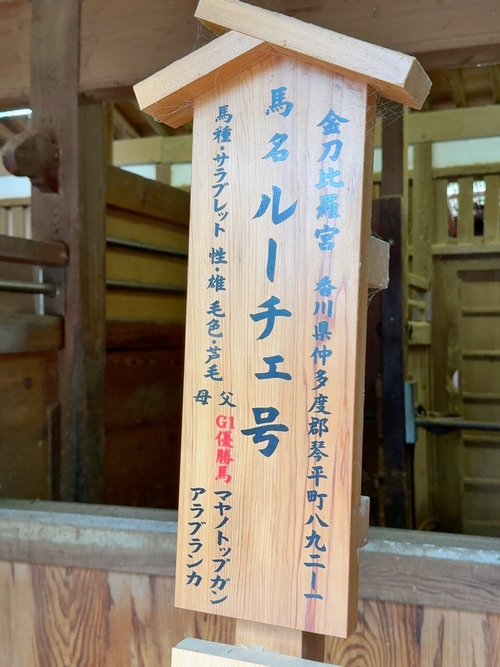 金刀比羅宮 香川県仲多度郡琴平町八九二ー一
馬名 ルーチェ号
馬種・サラブレット 性・雄 毛色・芦毛
父 G1優勝馬 マヤノトップガン
母 アラブランカ